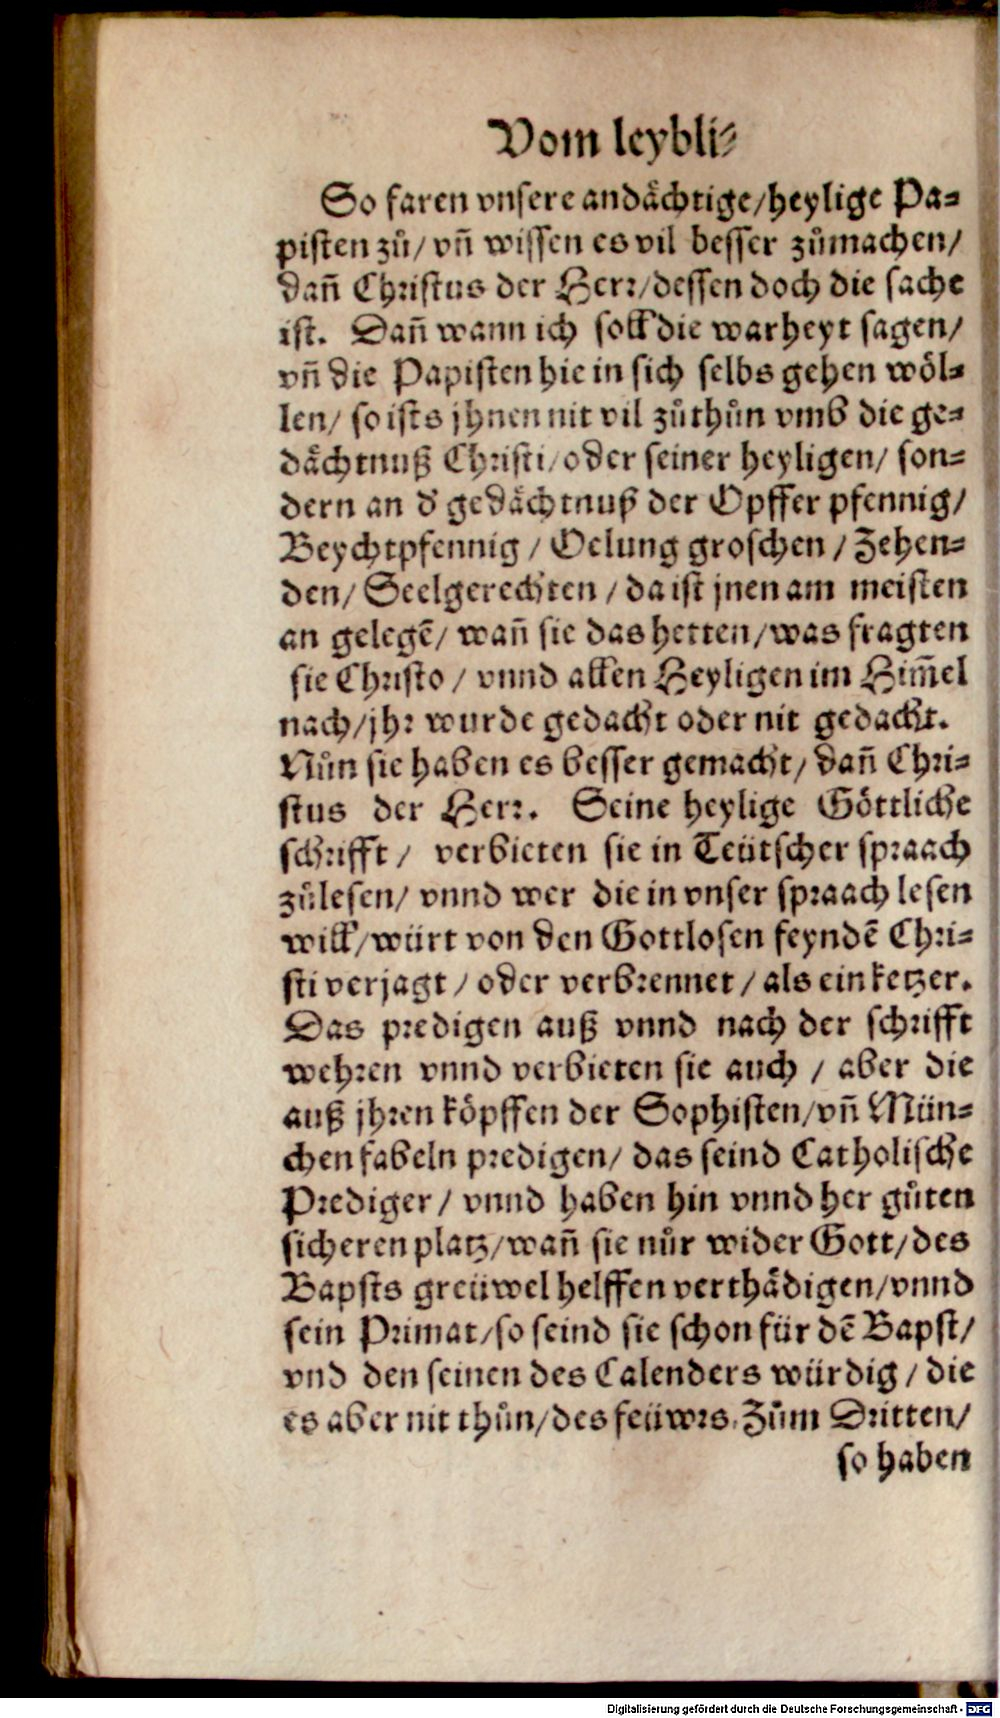 Vom leybli⸗
So faren vnsere andåchtige/heylige Pa⸗
pisten zů/ vñ wissen es vil besser zůmachen/
dañ Christus der Herr/dessen doch die sache
ist. Dañ wann ich soll die warheyt sagen/
vñ die Papisten hie in sich selbs gehen wöl⸗
len/ so ists jhnen nit vil zůthůn vmb die ge⸗
dåchtnuß Christi/oder seiner heyligen/ son⸗
dern an d' gedåchtnuß der Opffer pfennig/
Beychtpfennig / Oelung groschen / Zehen⸗
den/ Seelgerechten / da ist jnen am meisten
an gelegẽ/ wañ sie das hetten/was fragten
sie Christo / vnnd allen Heyligen im Him̃el
nach/jhr wurde gedacht oder nit gedacht.
Nůn sie haben es besser gemacht/ dañ Chri⸗
stus der Herr. Seine heylige Göttliche
schrifft / verbieten sie in Teütscher spraach
zůlesen/ vnnd wer die in vnser spraach lesen
will/würt von den Gottlosen feyndẽ Chri⸗
sti verjagt / oder verbrennet / als ein ketzer.
Das predigen auß vnnd nach der schrifft
wehren vnnd verbieten sie auch / aber die
auß jhren köpffen der Sophisten/vñ Mün⸗
chen fabeln predigen/ das seind Catholische
Prediger / vnnd haben hin vnnd her gůten
sicheren platz/wañ sie nůr wider Gott/des
Bapsts greüwel helffen verthådigen/vnnd
sein Primat/so seind sie schon für dẽ Bapst/
vnd den seinen des Calenders würdig / die
es aber nit thůn/des feüwrs. Zům Dritten/
so haben
Digitalisierung gefördert durch die Deutsche Forschungsgemeinschaft - DFG